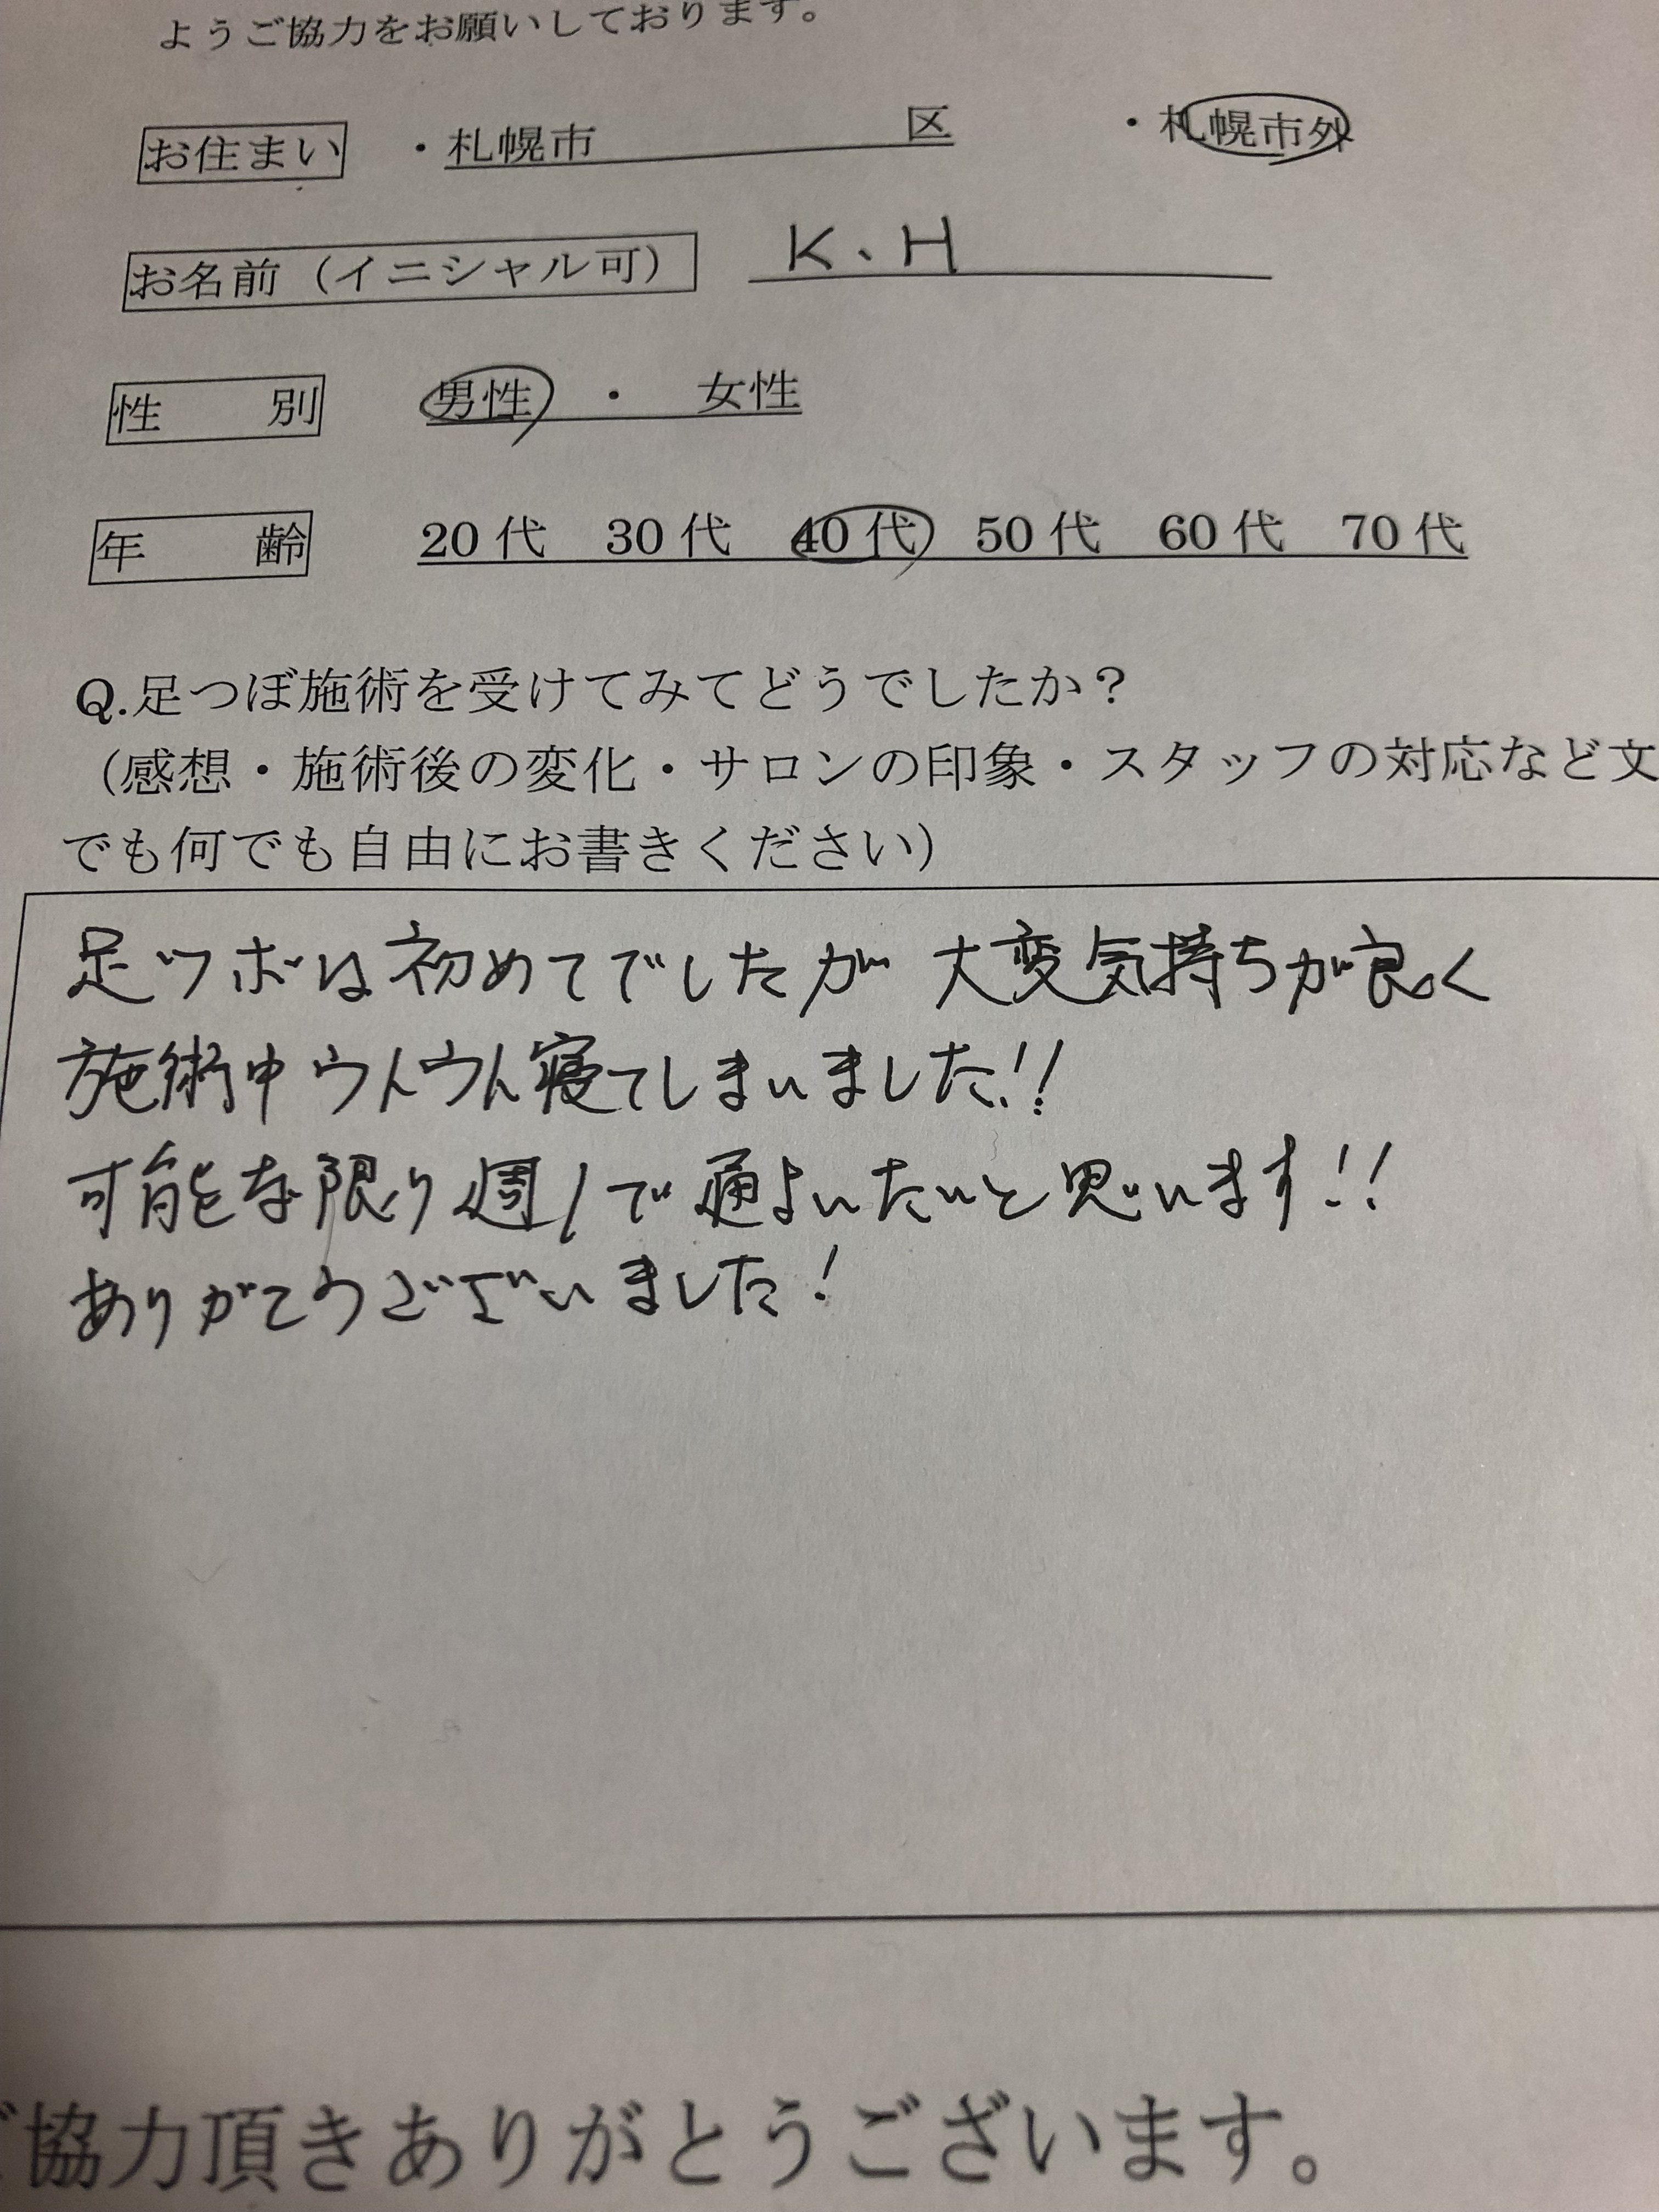 ようご協力をお願いしております。
お住まい ・札幌市 区 ・札幌市外
お名前（イニシャル可） K、H
性 別 男性 ・ 女性
年 齢 20代 30代 40代 50代 60代 70代
Q.足つぼ施術を受けてみてどうでしたか？
（感想・施術後の変化・サロンの印象・スタッフの対応など文
でも何でも自由にお書きください）
足ツボは初めてでしたが 大変気持ちが良く
施術中ウトウト寝てしまいました!!
可能な限り週1で通よいたいと思います!!
ありがとうございました!
ご協力頂きありがとうございます。